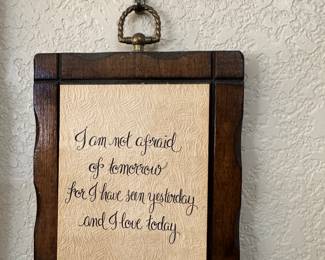 I am not afraid
of tomorrow
for I have seen yesterday
and I love today